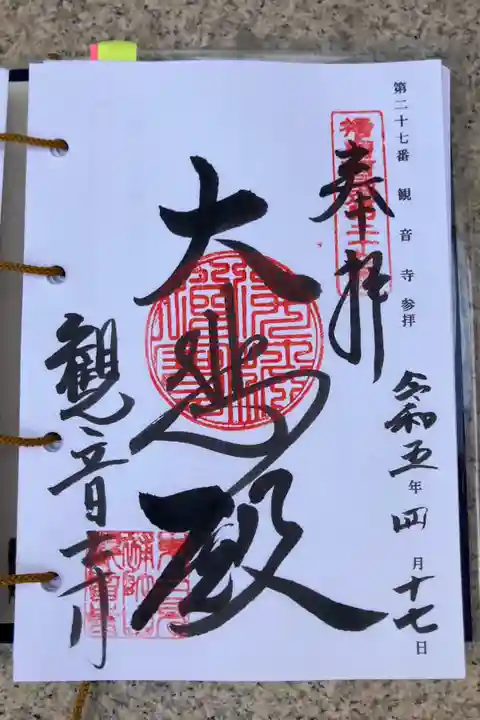 第二十七番 観音寺参拝
令和五年四月十七日
奉拝
大悲殿
観音寺